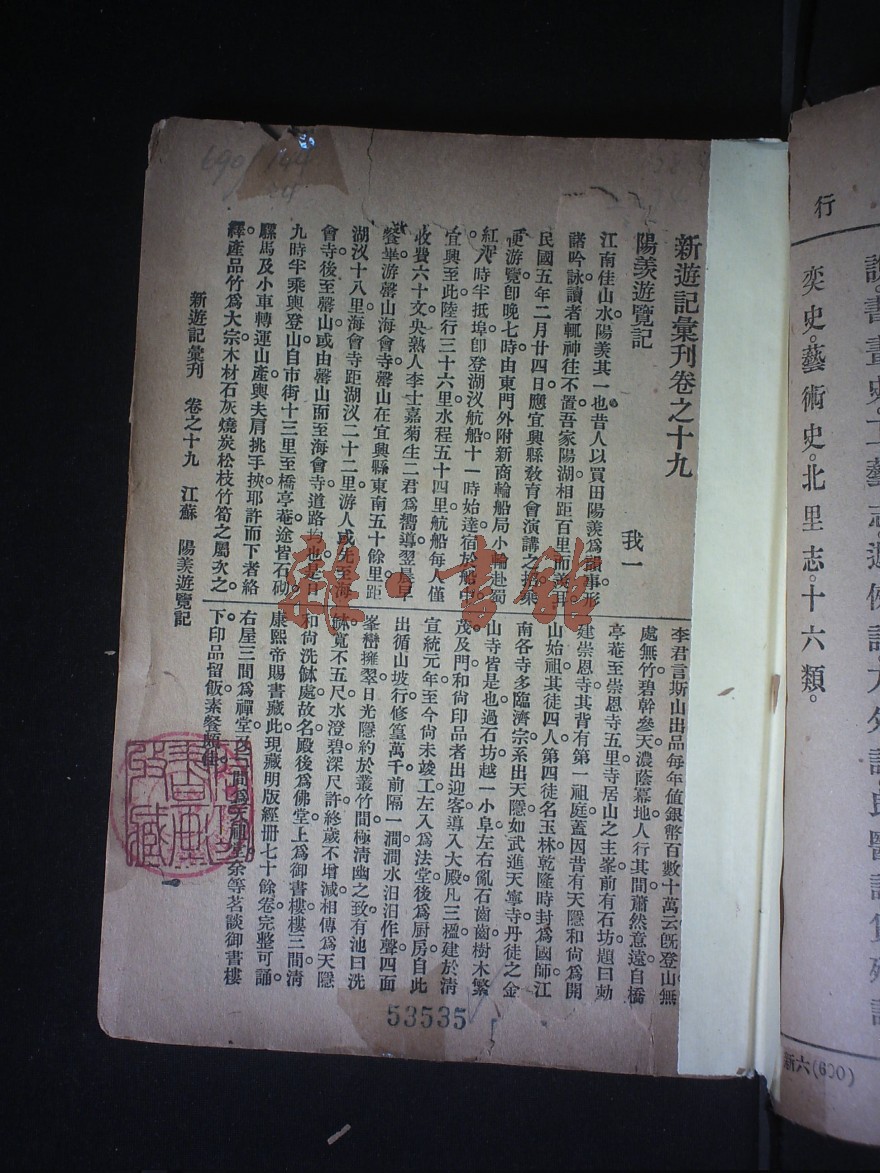 新遊記彙刊卷之十九
陽羨遊覽記
我一
江南佳山水陽羨其一也昔人以買田陽羨爲韻事形
諸吟詠讀者輒神往不置吾家陽湖相距百里而
民國五年二月廿四日應宜興縣敎育會演講之招乘
便游覽卽晚七時由東門外附新商輪船局小輪赴蜀
紅八時半抵埠卽登湖㳇航船十一時始達宿於船中
。宜興至此陸行三十六里水程五十四里航船每人僅
收費六十文央熟人李士嘉菊生二君爲嚮導翌晨早
餐畢游磬山海會寺磬山在宜興縣東南五十餘里距
湖㳇十八里海會寺距湖㳇二十二里游人或先至海
會寺後至磬山或由磬山而至海會寺道路均也是日
九時半乘輿登山自市街十三里至橋亭菴途皆石砌
。騾馬及小車轉運山產輿夫肩挑手挾耶許而下者絡
繹產品竹爲大宗木材石灰燒炭松枝竹筍之屬次之。
李君言斯山出品每年値銀幣百數十萬云旣登山無
處無竹碧幹參天濃蔭幕地人行其間蕭然意遠自橋
亭菴至崇恩寺五里寺居山之主峯前有石坊題曰勅
建崇恩寺其背有第一祖庭蓋因昔有天隱和尙爲開
山始祖其徒四人第四徒名玉林乾隆時封爲國師江
南各寺多臨濟宗系出天隱如武進天寧寺丹徒之金
山寺皆是也過石坊越一小阜左右亂石齒齒樹木繁
茂及門和尙印品者出迎客導入大殿凡三楹建於淸
宣統元年至今尙未竣工左入爲法堂後爲厨房自此
出循山坡行修篁萬千前隔一澗澗水汨汨作聲四面
峯巒擁翠日光隱約於叢竹間極淸幽之致有池曰洗
鉢寛不五尺水澄碧深尺許終歲不增減相傳爲天隱
和尙洗鉢處故名殿後爲佛堂上爲御書樓樓三間淸
康熙帝賜書藏此現藏明版經冊七十餘卷完整可誦
。右屋三間爲禪堂 間爲 祖堂 等茗談御書樓
下印品留飯素餐頗佳
新遊記彙刊 卷之十九 江蘇 陽羨遊覽記
53535
雜·書館
行
奕史。藝術史。北里志。十六類。
新六(600)